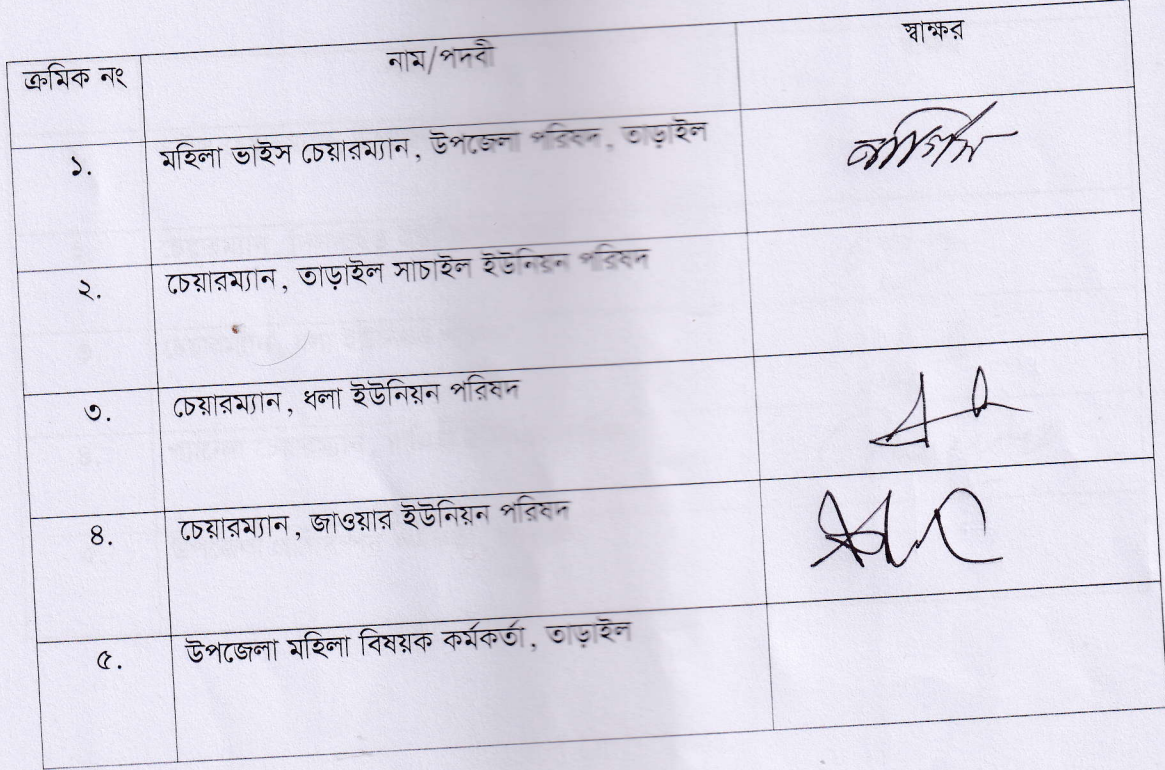 ক্রমিক নং নাম/পদবী স্বাক্ষর
১. মহিলা ভাইস চেয়ারম্যান, উপজেলা পরিষদ, তাড়াইল
২. চেয়ারম্যান, তাড়াইল সাচাইল ইউনিয়ন পরিষদ
৩. চেয়ারম্যান, ধলা ইউনিয়ন পরিষদ
৪. চেয়ারম্যান, জাওয়ার ইউনিয়ন পরিষদ
৫. উপজেলা মহিলা বিষয়ক কর্মকর্তা, তাড়াইল